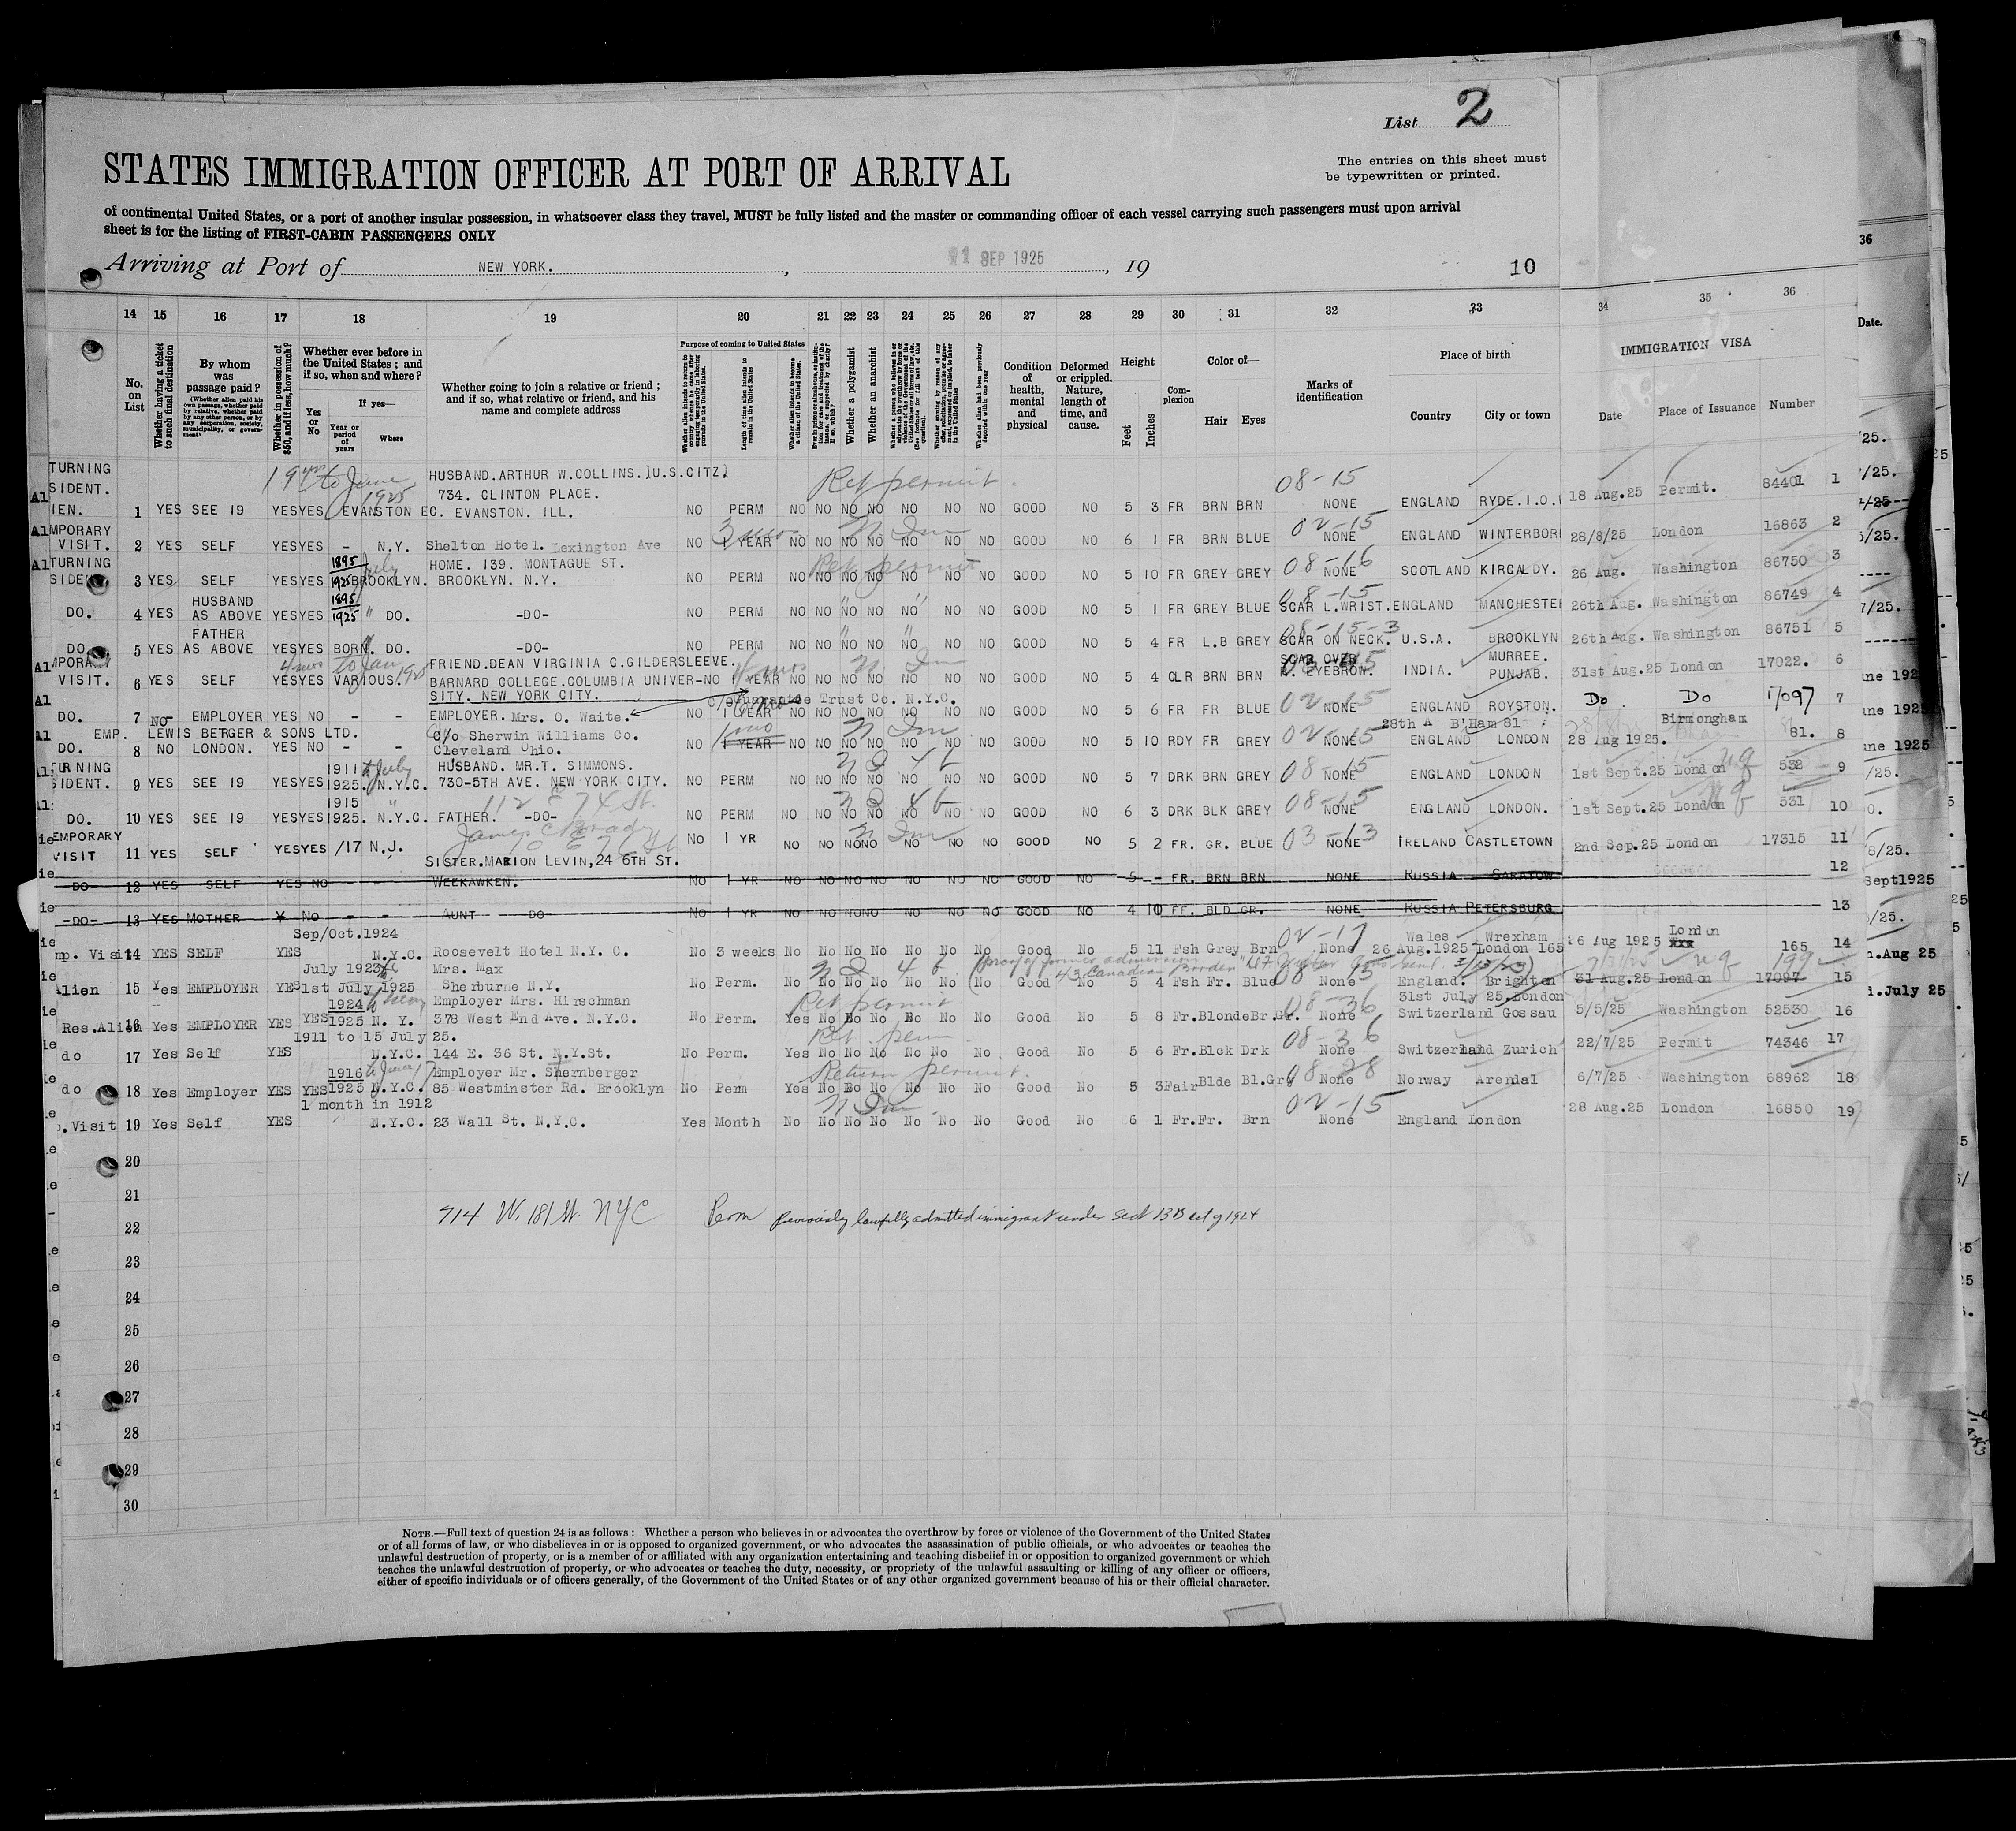 List 2
The entries on this sheet must
be typewritten or printed.
STATES IMMIGRATION OFFICER AT PORT OF ARRIVAL
of continental United States, or a port of another insular possession, in whatsoever class they travel, MUST be fully listed and the master or commanding officer of each vessel carrying such passengers must upon arrival
sheet is for the listing of FIRST-CABIN PASSENGERS ONLY
Arriving at Port of NEW YORK. , SEP 1925 , 19 10
14 15 16 17 18 19 20 21 22 23 24 25 26 27 28 29 30 31 32 33 34 35 36
No. on List
Whether having a ticket to such final destination
By whom was passage paid?
(Whether alien paid his own passage, whether paid by relative, whether paid by any other person, or by any corporation, society, municipality, or government)
Whether in possession of $50, and if less, how much?
Whether ever before in the United States; and if so, when and where?
Yes or No
If yes—
Year or period of years
Where
Whether going to join a relative or friend; and if so, what relative or friend, and his name and complete address
Purpose of coming to United States
Length of time alien intends to remain in the United States
Whether alien intends to become a citizen of the United States
Whether a polygamist
Whether an anarchist
Condition of health, mental and physical
Deformed or crippled. Nature, length of time, and cause.
Height
Feet
Inches
Complexion
Color of—
Hair Eyes
Marks of identification
Place of birth
Country City or town
IMMIGRATION VISA
Date Place of Issuance Number
TURNING 19 yrs to June 1925 HUSBAND.ARTHUR W.COLLINS.]U.S.CITZ] Ret permit 08-15
SIDENT. 734. CLINTON PLACE.
IEN. 1 YES SEE 19 YES YES EVANSTON EC. EVANSTON. ILL. NO PERM NO NO NO NO NO NO NO GOOD NO 5 3 FR BRN BRN NONE ENGLAND RYDE.I.O. 18 Aug.25 Permit. 84401 1
MPORARY
VISIT. 2 YES SELF YES YES - N.Y. Shelton Hotel. Lexington Ave NO 1 YEAR NO NO NO NO NO NO NO GOOD NO 6 1 FR BRN BLUE 02-15 NONE ENGLAND WINTERBOR 28/8/25 London 16863 2
TURNING 1895 July HOME. 139. MONTAGUE ST. Ret permit
3 YES SELF YES YES 1925 BROOKLYN. BROOKLYN. N.Y. NO PERM NO NO NO NO NO NO NO GOOD NO 5 10 FR GREY GREY 08-16 NONE SCOTLAND KIRCALDY. 26 Aug. Washington 86750 3
HUSBAND 1895
DO. 4 YES AS ABOVE YES YES 1925 " DO. -DO- NO PERM NO NO NO NO NO NO NO GOOD NO 5 1 FR GREY BLUE 08-15 SCAR L.WRIST. ENGLAND MANCHESTE 26th Aug. Washington 86749 4
FATHER
DO. 5 YES AS ABOVE YES YES BORN. DO. -DO- NO PERM NO NO NO NO NO NO NO GOOD NO 5 4 FR L.B GREY 08-15-3 SCAR ON NECK. U.S.A. BROOKLYN 26th Aug. Washington 86751 5
4 mos to Jan 1925 FRIEND.DEAN VIRGINIA C.GILDERSLEEVE. SCAR OVER MURREE.
VISIT. 6 YES SELF YES YES VARIOUS. BARNARD COLLEGE.COLUMBIA UNIVER- NO 1 YEAR NO NO NO NO NO NO NO GOOD NO 5 4 CLR BRN BRN R. EYEBRON. INDIA. PUNJAB. 31st Aug.25 London 17022. 6
SITY. NEW YORK CITY. c/o Guarantee Trust Co. N.Y.C.
DO. 7 NO EMPLOYER YES NO - - EMPLOYER. Mrs. O. Waite. NO 1 YEAR NO NO NO NO NO NO NO GOOD NO 5 6 FR FR BLUE 02-15 NONE ENGLAND ROYSTON. Do Do 17097 7
EMP. LEWIS BERGER & SONS LTD. c/o Sherwin Williams Co. 28th A B'Ham 81 Birmongham
DO. 8 NO LONDON. YES NO - - Cleveland Ohio. NO 1 YEAR NO NO NO NO NO NO NO GOOD NO 5 10 RDY FR GREY 02-15 NONE ENGLAND LONDON 28 Aug 1925. 81. 8
1911 to July HUSBAND. MR.T. SIMMONS.
SIDENT. 9 YES SEE 19 YES YES 1925. N.Y.C. 730-5TH AVE. NEW YORK CITY. NO PERM NO NO NO NO NO NO NO GOOD NO 5 7 DRK BRN GREY 08-15 NONE ENGLAND LONDON 1st Sept.25 London 532 9
1915 " 112 E 74 St.
DO. 10 YES SEE 19 YES YES 1925. N.Y.C. FATHER. -DO- NO PERM NO NO NO NO NO NO NO GOOD NO 6 3 DRK BLK GREY 08-15 NONE ENGLAND LONDON. 1st Sept.25 London 531 10
EMPORARY James C Brady
VISIT 11 YES SELF YES YES /17 N.J. NO 1 YR NO NO NO NO NO NO NO GOOD NO 5 2 FR. GR. BLUE 03-13 NONE IRELAND CASTLETOWN 2nd Sep.25 London 17315 11
SISTER.MARION LEVIN,24 6TH ST.
DO 12 YES SELF YES NO - - WEEKAWKEN. NO 1 YR NO NO NO NO NO NO NO GOOD NO 5 - FR. BRN BRN NONE RUSSIA SARATOW 12
-DO- 13 YES MOTHER Y NO - - AUNT -DO- NO 1 YR NO NO NO NO NO NO NO GOOD NO 4 10 FF. BLD GR. NONE RUSSIA PETERSBURG 13
Sep/Oct.1924 02-17 Wales Wrexham London
mp. Visit 14 YES SELF YES N.Y.C. Roosevelt Hotel N.Y. C. No 3 weeks No No No No No No No Good No 5 11 Fsh Grey Brn None 26 Aug.1925 London 165 26 Aug 1925 165 14
July 1923 to Mrs. Max (proof of former admission
Alien 15 Yes EMPLOYER YES 1st July 1925 Sherburne N.Y. No Perm. No No No No No No No Good No 5 4 Fsh Fr. Blue 08-15 None England. Brighton 31 Aug.25 London 17097 15
1924 Employer Mrs. Hirschman Ret permit 08-36 31st July 25.London
Res.Alien 16 Yes EMPLOYER YES YES 1925 N. Y. 378 West End Ave. N.Y.C. No Perm. Yes No No No No No No Good No 5 8 Fr. Blonde Br.Gr. None Switzerland Gossau 5/5/25 Washington 52530 16
1911 to 15 July 25. Ret perm
do 17 Yes Self YES N.Y.C. 144 E. 36 St. N.Y.St. No Perm. Yes No No No No No No Good No 5 6 Fr. Blck Drk 08-36 None Switzerland Zurich 22/7/25 Permit 74346 17
1916 to June Employer Mr. Shernberger Return permit.
do 18 Yes Employer YES YES 1925 N.Y.C. 85 Westminster Rd. Brooklyn No Perm Yes No No No No No No Good No 5 3 Fair Blde Bl.Gry 08-28 None Norway Arendal 6/7/25 Washington 68962 18
1 month in 1912
.Visit 19 Yes Self YES N.Y.C. 23 Wall St. N.Y.C. Yes Month No No No No No No No Good No 6 1 Fr. Fr. Brn 02-15 None England London 28 Aug.25 London 16850 19
20
21
714 W. 181 St. NYC Perm previously lawfully admitted immigrant under Sect 13B act of 1924
22
23
24
25
26
27
28
29
30
NOTE.—Full text of question 24 is as follows: Whether a person who believes in or advocates the overthrow by force or violence of the Government of the United States
or of all forms of law, or who disbelieves in or is opposed to organized government, or who advocates the assassination of public officials, or who advocates or teaches the
unlawful destruction of property, or is a member of or affiliated with any organization entertaining and teaching disbelief in or opposition to organized government or which
teaches the unlawful destruction of property, or who advocates or teaches the duty, necessity, or propriety of the unlawful assaulting or killing of any officer or officers,
either of specific individuals or of officers generally, of the Government of the United States or of any other organized government because of his or their official character.